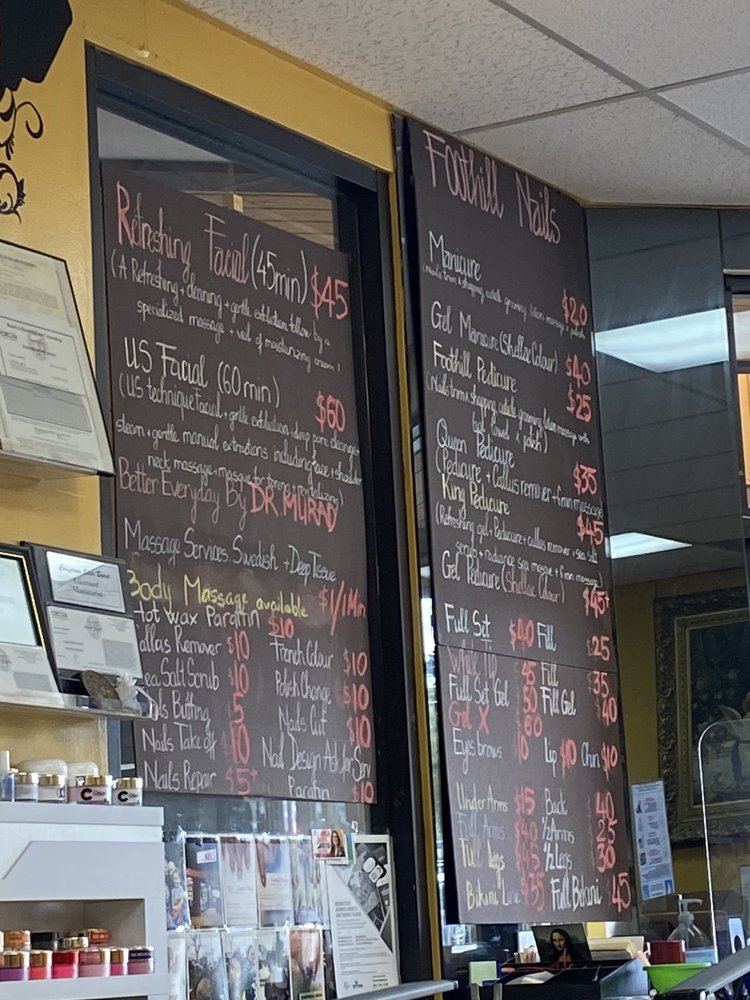 Refreshing Facial (45min) $45
(A Refreshing + cleaning + gentle exfoliation follow by a
specialized massage + veil of moisturizing cream)
US Facial (60min) $60
(US technique Facial + gentle exfoliation + deep pore cleanage
steam + gentle manual extractions including face + shoulder
neck massage + masque for toning + revitalizing)
Better Everyday By DR. MURAD
Massage Services Swedish + Deep Tissue
Body Massage available $1/1Min
Hot wax Paraffin $10
Callas Remover $10 French Colour $10
Sea Salt Scrub $10 Polish Change $10
Nails Buffing $5 Nails Cut $10
Nails Take off $10 Nail Design Ask for Serv
Nails Repair $5+ Parafin $10
Foothill Nails
Manicure $20
(Nails trim + shapping, cuticle grooming, lotion massage + polish)
Gel Manicure (Shellac Colour) $40
Foothill Pedicure $25
(Nails trim + shapping, cuticle grooming, lotion massage with
hot towel + polish)
Queen Pedicure $35
(Pedicure + Callus remover + 6 min massage)
King Pedicure $45
(Refreshing gel + Pedicure + callus remover + sea salt
scrub + radiance sea masque + 6 min massage)
Gel Pedicure (Shellac Colour) $45+
Full Set $40 Fill $25
White Tip 45 Fill $35
Full Set Gel $50 Fill Gel $40
Gel X $60
Eyes brows $10 Lip $10 Chin $10
Under Arms $15 Back 40
Full Arms $40 1/2 Arms 25
Full Legs $45 1/2 Legs 30
Bikini Line $35 Full Bikini 45